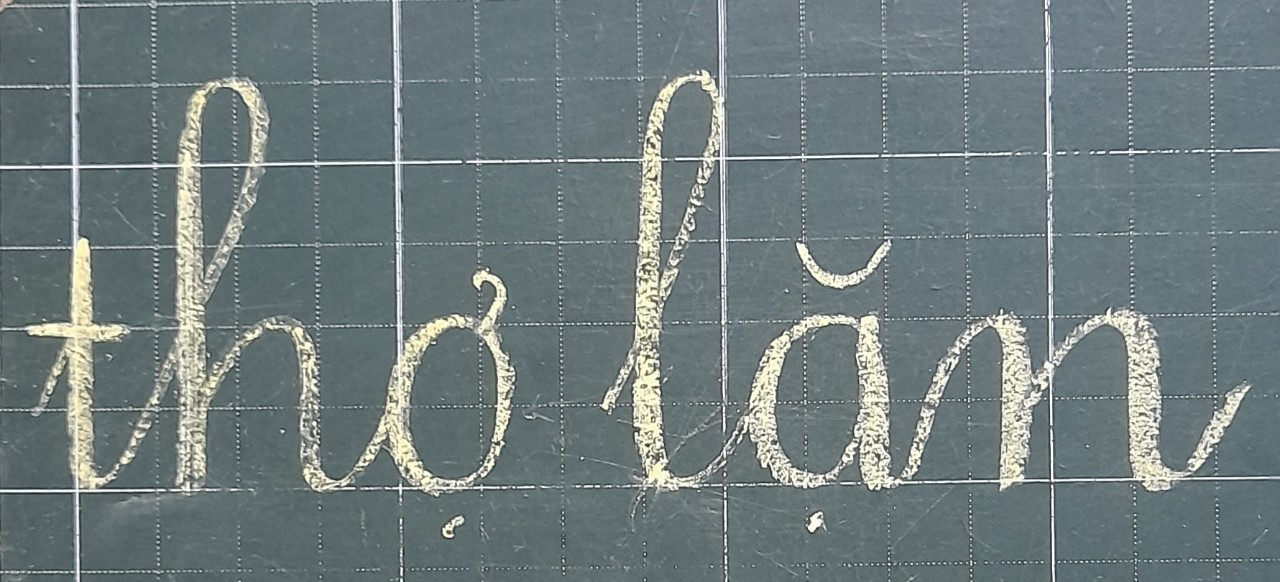 thợ lặn